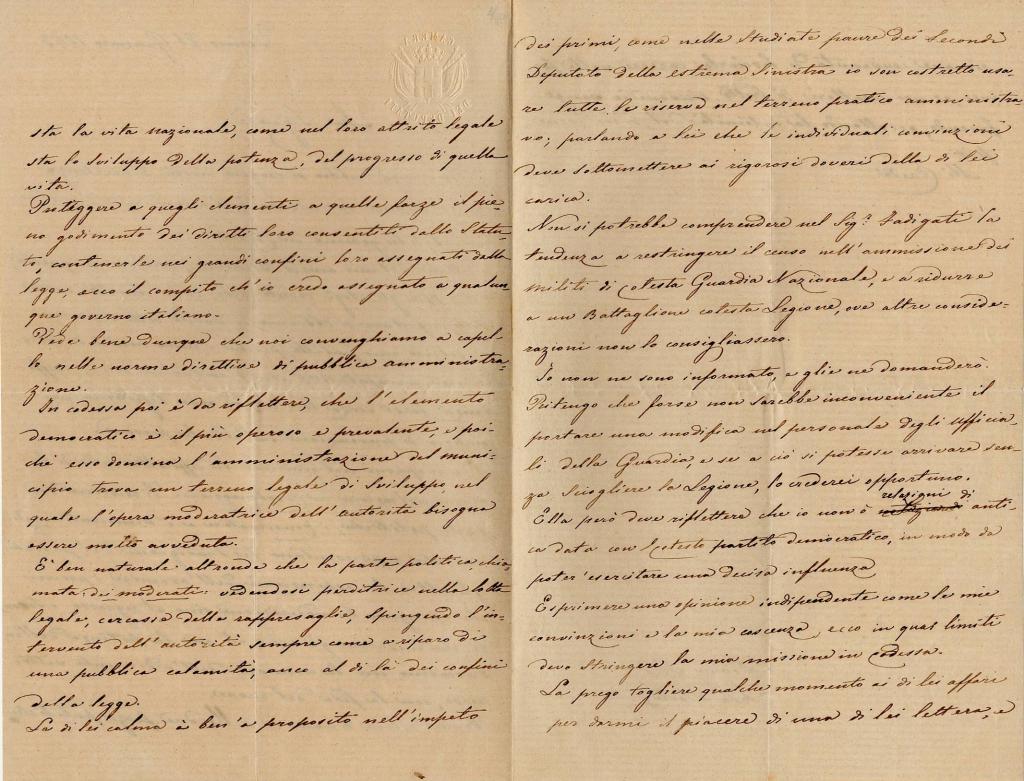 sta la vita nazionale, come nel loro attrito legale
sta lo sviluppo della potenza, del progresso di quella
vita.
Proteggere a quegli elementi a quelle forze il pie-
no godimento dei diritti loro consentiti dallo Statu-
to, contenerle nei grandi confini loro assegnati dalla
legge, ecco il compito ch'io credo assegnato a qualun-
que governo italiano.
Vede bene dunque che noi convenghiamo a capel-
lo nelle norme direttive di pubblica amministra-
zione.
In codessa poi è da riflettere, che l'elemento
democratico è il più operoso e prevalente, e poi-
chè esso domina l'amministrazione del muni-
cipio trova un terreno legale di sviluppo, nel
quale l'opera moderatrice dell'autorità bisogna
essere molto avveduta.
E' ben naturale altronde che la parte politica chia-
mata dei moderati vedendosi perditrice nella lotta
legale, cercasse delle rappresaglie, spingendo l'in-
tervento dell'autorità sempre come a riparo di
una pubblica calamità, anco al di là dei confini
della legge.
La di lei calma è ben a proposito nell'impeto
dei primi, come nelle studiate paure dei secondi
Deputato della estrema sinistra io son costretto usa-
re tutte le riserve nel terreno pratico amministrati-
vo; parlando a lei che le individuali convinzioni
deve sottomettere ai rigorosi doveri della di lei
carica.
Non si potrebbe comprendere nel Sigr. Fadigati la
tendenza a restringere il censo nell'ammissione dei
militi di cotesta Guardia Nazionale, e a ridurre
a un Battaglione cotesta Legione, ove altre conside-
razioni non lo consigliassero.
Io non ne sono informato, e glie ne domanderò.
Ritengo che forse non sarebbe inconveniente il
portare una modifica nel personale degli Ufficia-
li della Guardia, e se a ciò si potesse arrivare sen-
za sciogliere la Legione, lo crederei opportuno.
relazioni di
Ella però deve riflettere che io non ò anti-
ca data con cotesto partito democratico, in modo da
poter esercitare una decisa influenza
Esprimere una opinione indipendente come le mie
convinzioni e la mia coscenza, ecco in quai limiti
devo stringere la mia missione in codessa.
La prego togliere qualche momento ai di lei affari
per darmi il piacere di una di lei lettera, e